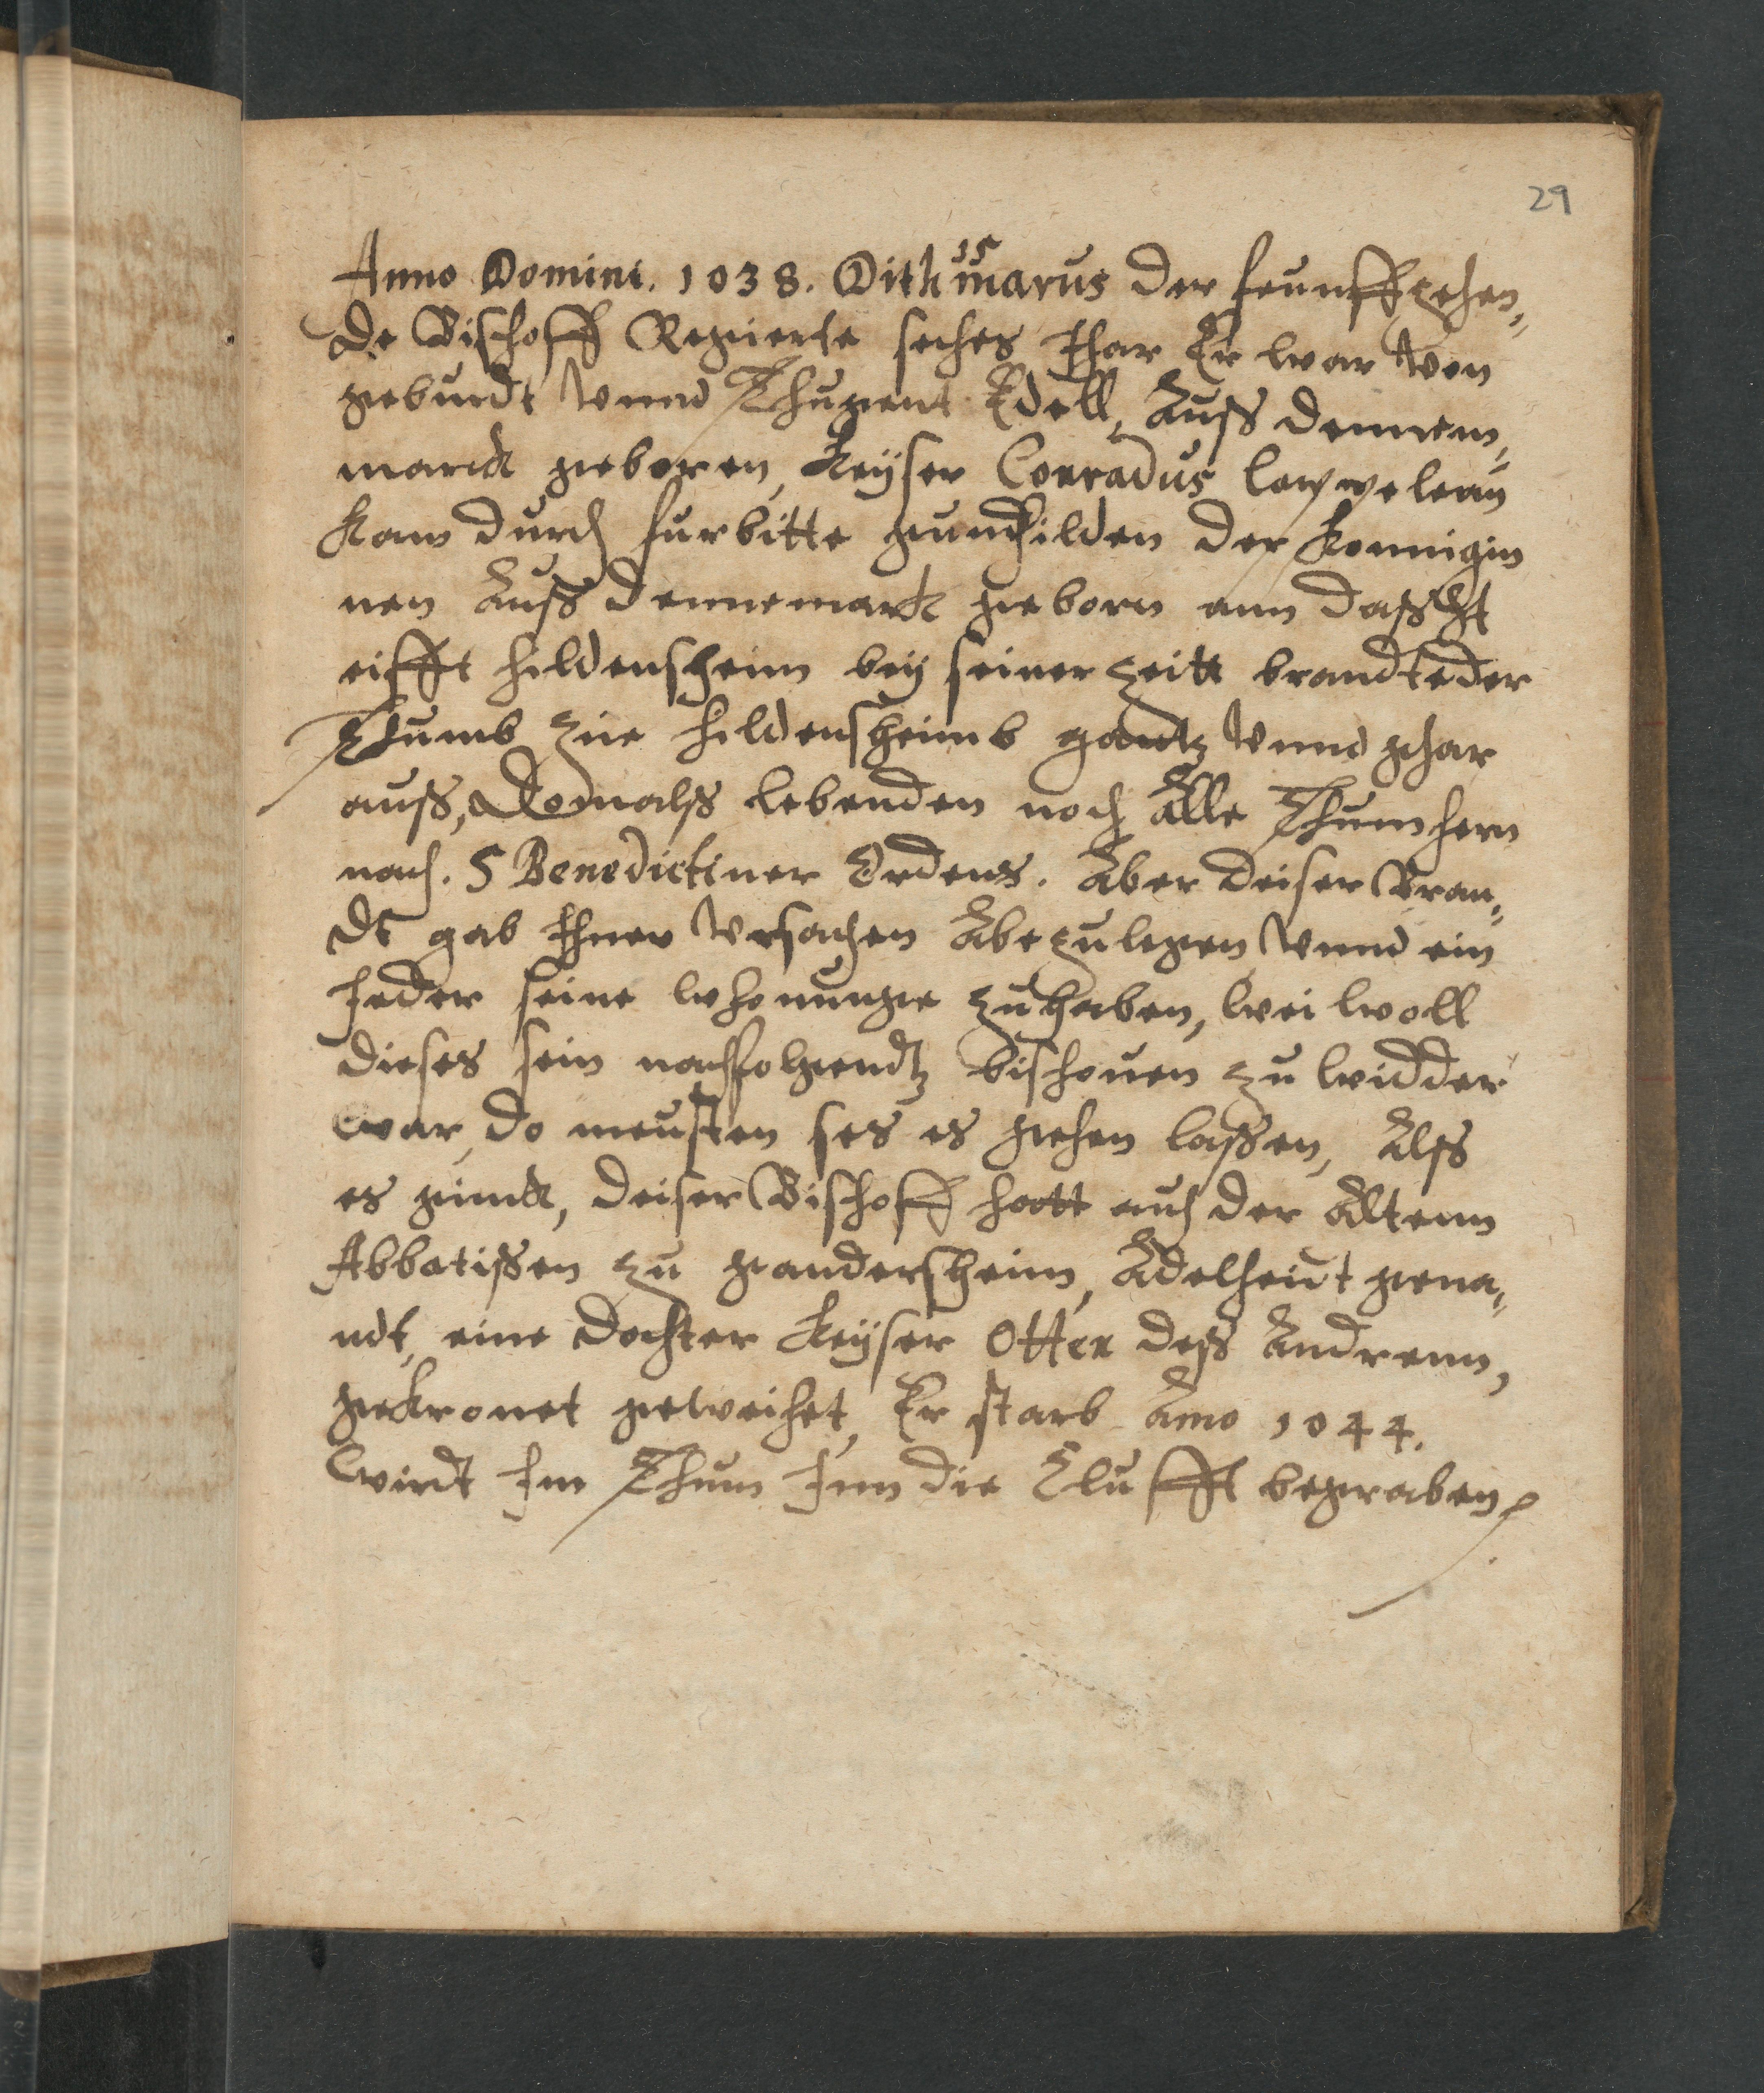 29
15
Anno Domini. 1038. Dithmarus der feunffzehen,,
de Bischoff Regierte seches Jhar Er war von
geburdt vnnd Thugent Edell, Auß Dennem,
marck geboren, Keyser Conradus
kam durch furbitte gunhilden der konnigin
nen Auß Dennemark geborn ann daß St
eifft hildenscheim bey seiner zeitt brandte der
Thumb zue hildensheimb gantz vnnd ghar
auß, Domalß lebenden noch Alle Thumhern
nach. S Benedictiner Ordens. Aber deiser Bran,,
dt gab Jhnen Vrsachen Abezulegen vnnd ein
Jeder seine whonunge zuhaben, wei woll
dieses sein nachfolgendtz bischouen zu widder
war, do meusten ses es gehen laßen, Alß
es ginck, deiser Bischoff hatt auch der Altenn
Abbatißen zu gandersheim, Adelheit gena,,
ndt, eine dochter Keyser Otten deß Andrenn,
gekronet geweihet, Er starb Anno 1044.
Wirdt Im Thum Inn die Clufft begraben